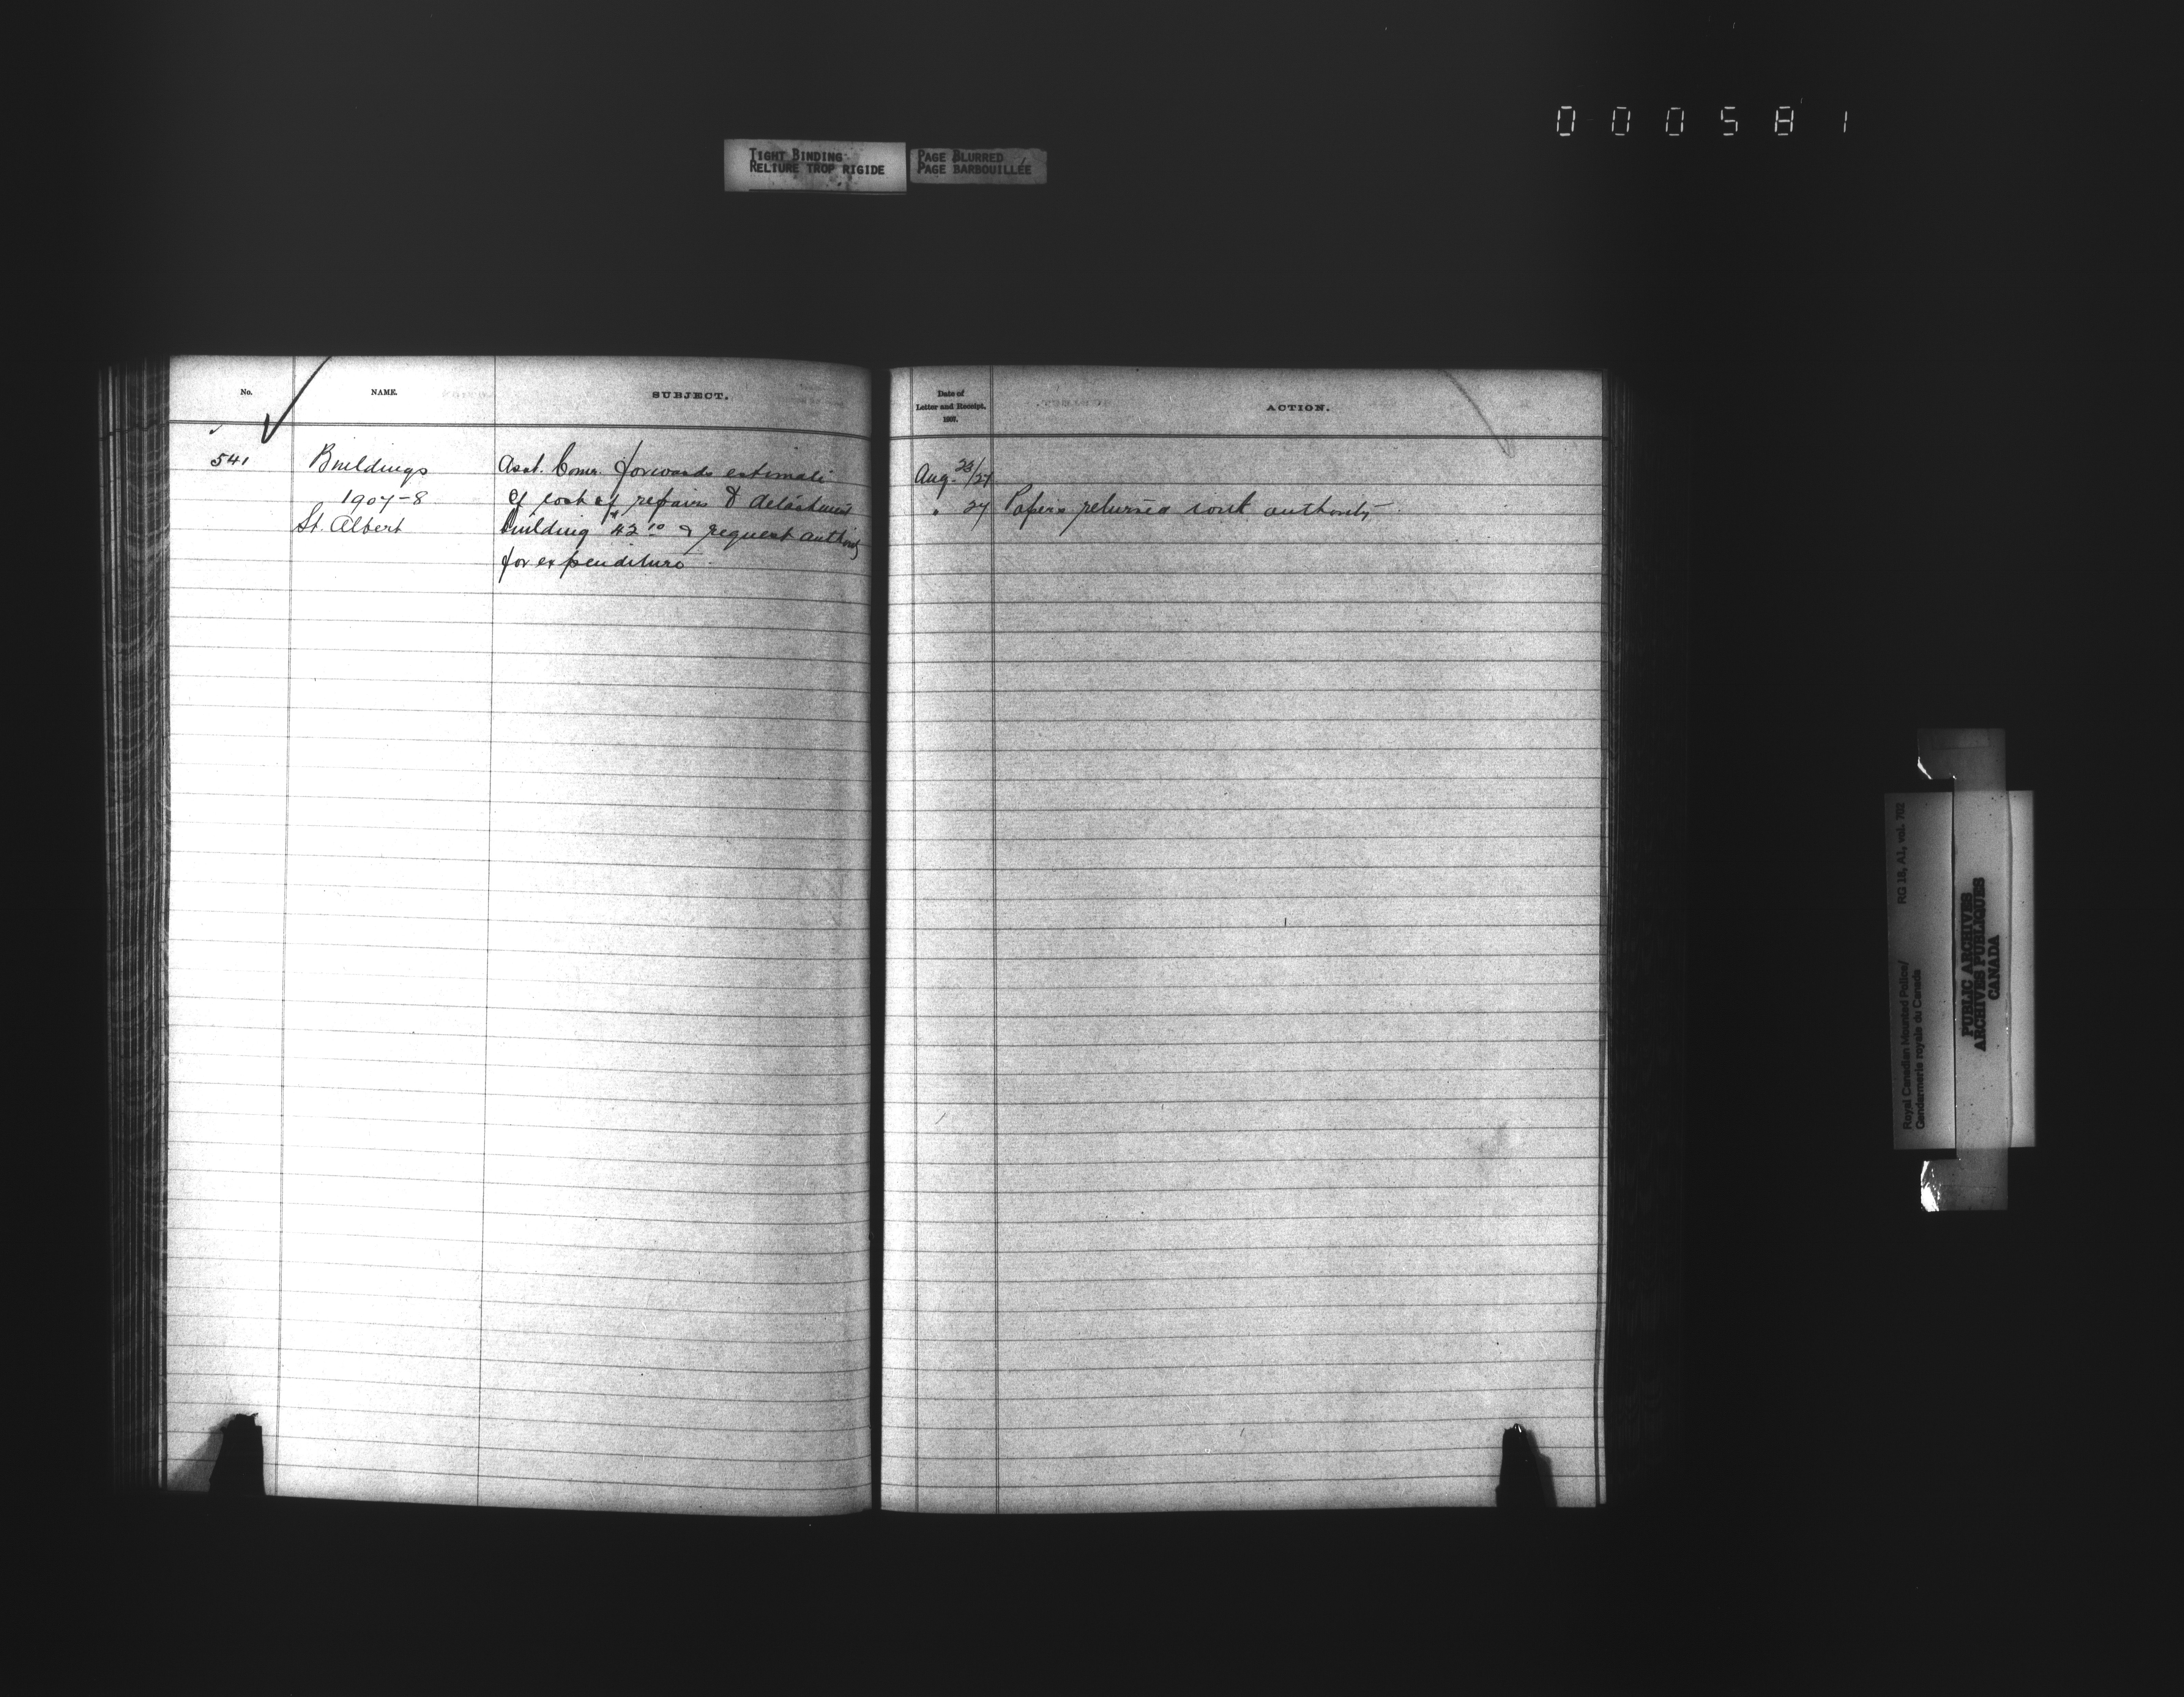 000581
TIGHT BINDING
RELIURE TROP RIGIDE
PAGE BLURRED
PAGE BARBOUILLÉE
No.
NAME.
SUBJECT.
541
Buildings
1907-8
St. Albert
Asst. Comr. forwards estimate
of cost of repairs to detachment
building $42.10 & request authority
for expenditure
Date of
Letter and Receipt,
1907.
ACTION.
Aug. 23/27
" 27 Papers returned with authority
Royal Canadian Mounted Police/
Gendarmerie royale du Canada
RG 18, A1, vol. 702
PUBLIC ARCHIVES
ARCHIVES PUBLIQUES
CANADA